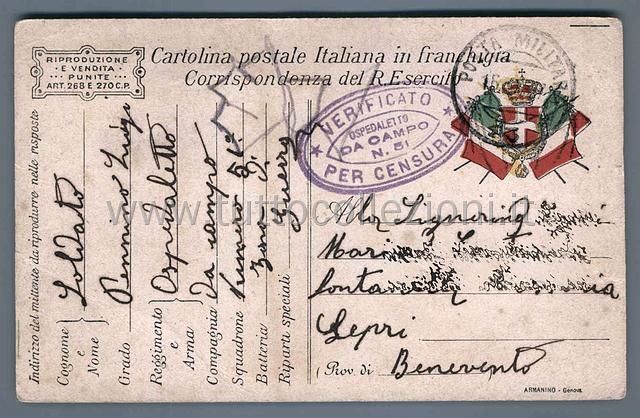 RIPRODUZIONE
E VENDITA
PUNITE
ART. 268 E 270 C.P.
Cartolina postale Italiana in franchigia
Corrispondenza del R. Esercito
POSTA MILITARE
VERIFICATO
OSPEDALETTO
DA CAMPO
N. 51
PER CENSURA
Indirizzo del mittente da riprodurre nelle risposte
Cognome e Nome
Soldato
Grado
Luigi
Reggimento e Arma
Ospedaletto
Compagnia
Da campo
Squadrone
51º
Batteria
Zona di
Riparti speciali
Guerra
Alla Signorina
Lepri
(Prov. di Benevento
ARMANINO - Genova
www.tuttocollezioni.it